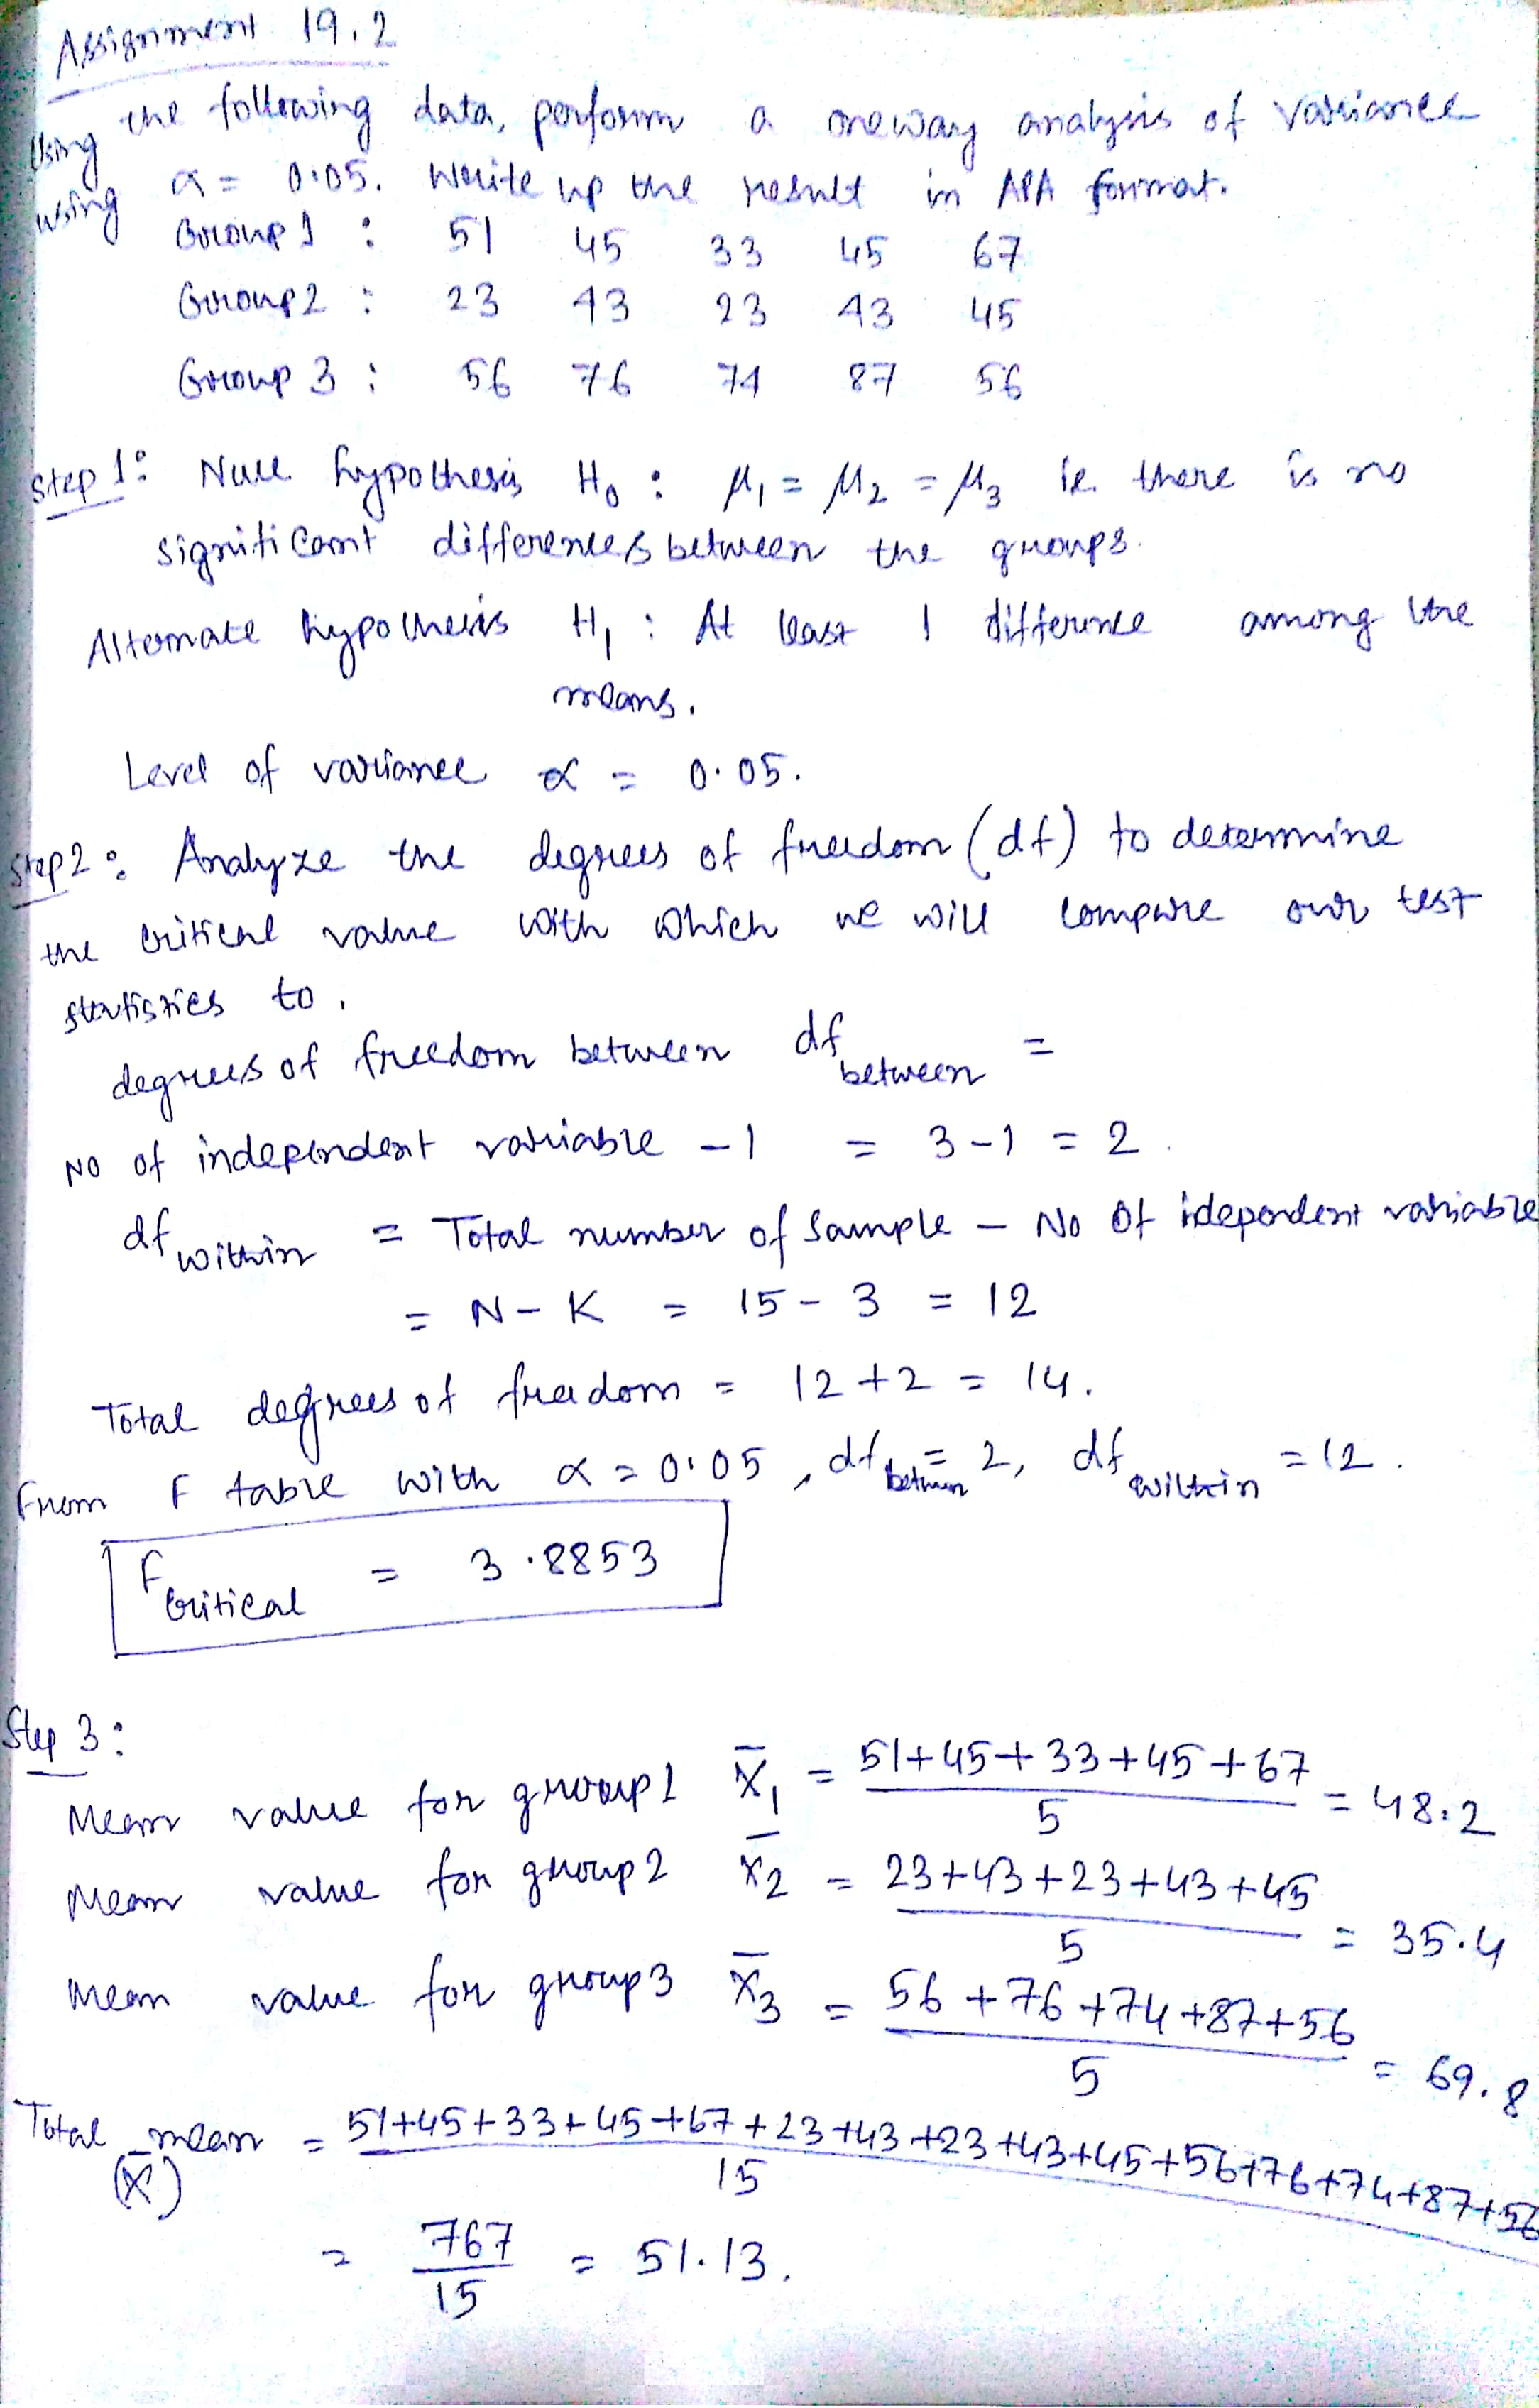 Assignment 19.2
Using the following data, perform a oneway analysis of variance
using α = 0.05. Write up the result in APA format.
Group 1 : 51 45 33 45 67
Group 2 : 23 43 23 43 45
Group 3 : 56 76 74 87 56
Step 1: Null hypothesis H₀ : μ₁ = μ₂ = μ₃ ie. there is no
significant differences between the groups.
Alternate hypothesis H₁ : At least 1 difference among the
means.
Level of variance α = 0.05.
Step 2: Analyze the degrees of freedom (df) to determine
the critical value with which we will compare our test
statistics to.
degrees of freedom between df between =
No of independent variable - 1 = 3 - 1 = 2.
df within = Total number of sample - No of idependent variable
= N - K = 15 - 3 = 12
Total degrees of freedom = 12 + 2 = 14.
From F table with α = 0.05, df between = 2, df within = 12.
F critical = 3.8853
Step 3:
Mean value for group 1 X̄₁ = (51+45+33+45+67)/5 = 48.2
Mean value for group 2 X̄₂ = (23+43+23+43+45)/5 = 35.4
Mean value for group 3 X̄₃ = (56+76+74+87+56)/5 = 69.8
Total mean (X̄) = (51+45+33+45+67+23+43+23+43+45+56+76+74+87+56)/15
= 767/15 = 51.13.